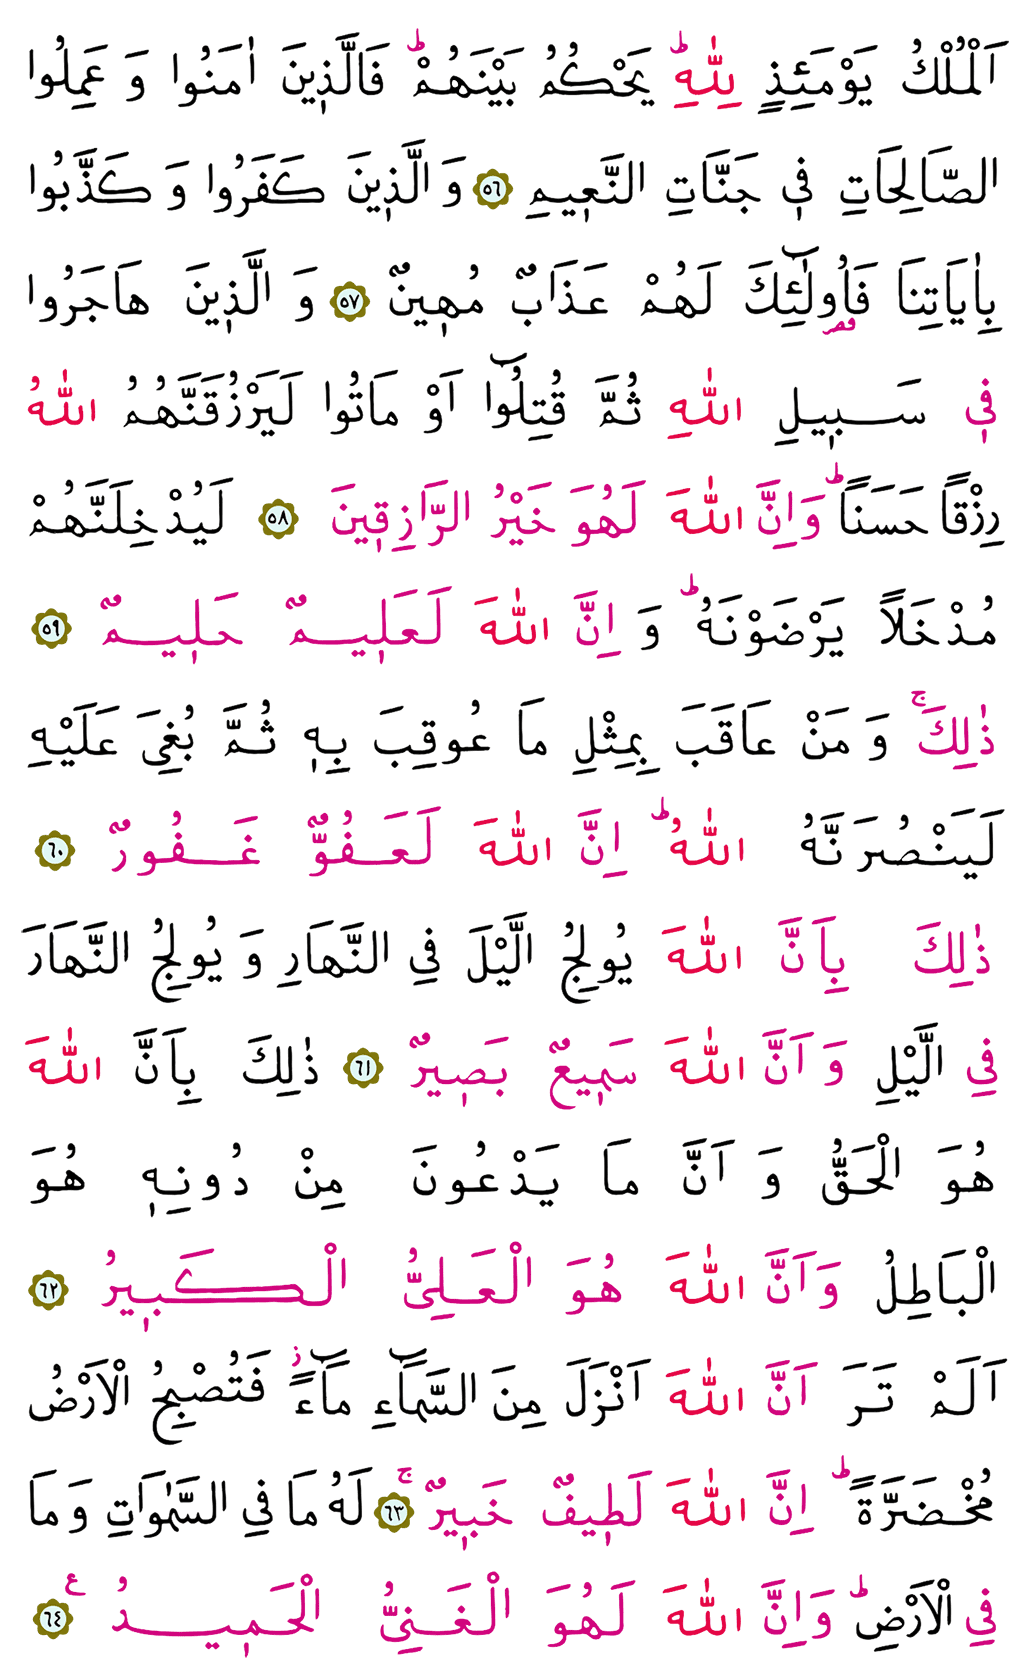 اَلْمُلْكُ يَوْمَئِذٍ لِلّٰهِؕ يَحْكُمُ بَيْنَهُمْؕ فَالَّذٖينَ اٰمَنُوا وَ عَمِلُوا
الصَّالِحَاتِ فٖي جَنَّاتِ النَّعٖيمِ ﴿٥٦﴾ وَ الَّذٖينَ كَفَرُوا وَ كَذَّبُوا
بِاٰيَاتِنَا فَاُولٰٓئِكَ لَهُمْ عَذَابٌ مُهٖينٌ ﴿٥٧﴾ وَ الَّذٖينَ هَاجَرُوا
فٖي سَبٖيلِ اللّٰهِ ثُمَّ قُتِلُٓوا اَوْ مَاتُوا لَيَرْزُقَنَّهُمُ اللّٰهُ
رِزْقًا حَسَنًاؕ وَاِنَّ اللّٰهَ لَهُوَ خَيْرُ الرَّازِقٖينَ ﴿٥٨﴾ لَيُدْخِلَنَّهُمْ
مُدْخَلًا يَرْضَوْنَهُؕ وَ اِنَّ اللّٰهَ لَعَلٖيمٌ حَلٖيمٌ ﴿٥٩﴾
ذٰلِكَۚ وَ مَنْ عَاقَبَ بِمِثْلِ مَا عُوقِبَ بِهٖ ثُمَّ بُغِيَ عَلَيْهِ
لَيَنْصُرَنَّهُ اللّٰهُؕ اِنَّ اللّٰهَ لَعَفُوٌّ غَفُورٌ ﴿٦٠﴾
ذٰلِكَ بِاَنَّ اللّٰهَ يُولِجُ الَّيْلَ فِي النَّهَارِ وَ يُولِجُ النَّهَارَ
فِي الَّيْلِ وَ اَنَّ اللّٰهَ سَمٖيعٌ بَصٖيرٌ ﴿٦١﴾ ذٰلِكَ بِاَنَّ اللّٰهَ
هُوَ الْحَقُّ وَ اَنَّ مَا يَدْعُونَ مِنْ دُونِهٖ هُوَ
الْبَاطِلُ وَ اَنَّ اللّٰهَ هُوَ الْعَلِيُّ الْكَبٖيرُ ﴿٦٢﴾
اَلَمْ تَرَ اَنَّ اللّٰهَ اَنْزَلَ مِنَ السَّمَٓاءِ مَٓاءًؗ فَتُصْبِحُ الْاَرْضُ
مُخْضَرَّةًؕ اِنَّ اللّٰهَ لَطٖيفٌ خَبٖيرٌۚ ﴿٦٣﴾ لَهُ مَا فِي السَّمٰوَاتِ وَ مَا
فِي الْاَرْضِؕ وَاِنَّ اللّٰهَ لَهُوَ الْغَنِيُّ الْحَمٖيدُ ع ﴿٦٤﴾